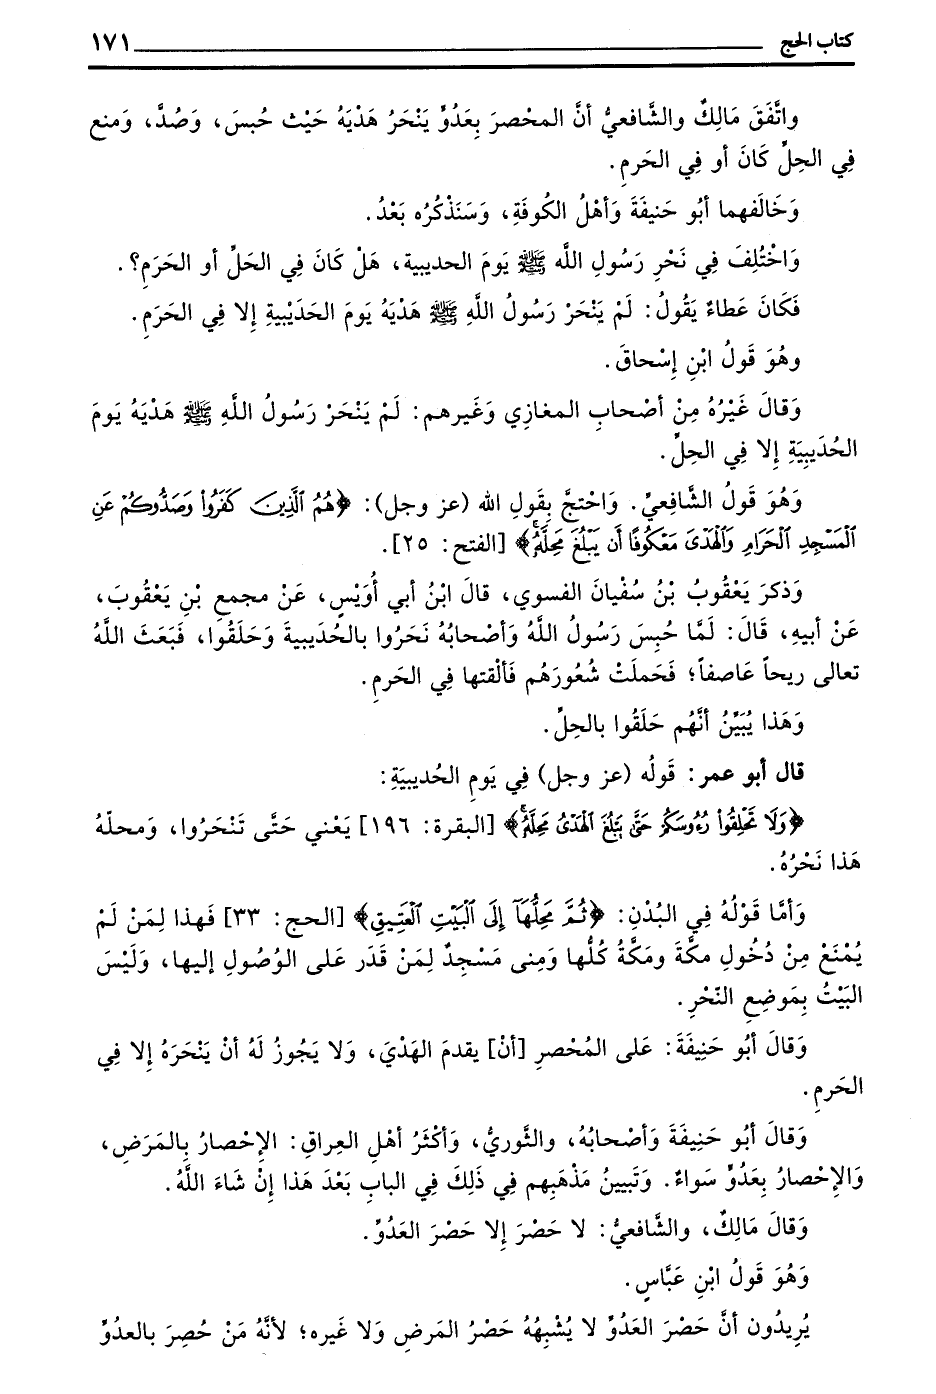 كتاب الحج ١٧١
واتَّفَقَ مَالِكٌ والشَّافعيُّ أنَّ المحْصرَ بِعَدُوٍّ يَنْحَرُ هَدْيَهُ حَيْث حُبسَ، وَصُدَّ، وَمنع
فِي الحِلِّ كَانَ أو فِي الحَرمِ.
وَخَالَفهما أبُو حَنيفَةَ وَأهْلُ الكُوفَةِ، وَسَنَذْكُرُه بَعْدُ.
وَاخْتُلِفَ فِي نَحْرِ رَسُولِ اللَّه ﷺ يَومَ الحديبية، هَلْ كَانَ فِي الحَلِّ أو الحَرَمِ؟.
فَكَانَ عَطاءٌ يَقُولُ: لَمْ يَنْحَرْ رَسُولُ اللَّهِ ﷺ هَدْيَهُ يَومَ الحَدَيْبيةِ إلا فِي الحَرَمِ.
وهُوَ قَولُ ابْنِ إسْحاقَ.
وَقالَ غَيْرُهُ مِنْ أصْحابِ المغازي وَغَيرهم: لَمْ يَنْحَرْ رَسُولُ اللَّهِ ﷺ هَدْيَهُ يَومَ
الحُدَيبِيَةِ إلا فِي الحِلِّ.
وَهُوَ قَولُ الشَّافعيِّ. وَاحْتجَّ بِقَولِ الله (عز وجل): ﴿هُمُ ٱلَّذِينَ كَفَرُواْ وَصَدُّوكُمْ عَنِ
ٱلْمَسْجِدِ ٱلْحَرَامِ وَٱلْهَدْىَ مَعْكُوفًا أَن يَبْلُغَ مَحِلَّهُۥ﴾ [الفتح: ٢٥].
وَذكرَ يَعْقُوبُ بْنُ سُفْيانَ الفسوي، قالَ ابْنُ أبي أُوَيْسٍ، عَنْ مجمعِ بْنِ يَعْقُوبَ،
عَنْ أبيهِ، قَالَ: لَمَّا حُبِسَ رَسُولُ اللَّهُ وَأصْحابُهُ نَحَرُوا بالحُدَيبيةَ وَحَلَقُوا، فَبَعَثَ اللَّهُ
تعالى ريحاً عَاصفاً؛ فَحَملَتْ شُعُورَهُم فَألْقتها فِي الحَرمِ.
وَهَذا يُبَيِّنُ أنَّهُم حَلَقُوا بالحِلِّ.
قال أبو عمر: قَولُه (عز وجل) فِي يَومِ الحُديبيَةِ:
﴿وَلَا تَحْلِقُواْ رُءُوسَكُمْ حَتَّىٰ بَبْلُغَ ٱلْهَدْىُ مَحِلَّهُۥ﴾ [البقرة: ١٩٦] يَعْني حَتَّى تَنْحَرُوا، وَمحلّهُ
هَذا نَحْرُهُ.
وَأمَّا قَوْلُهُ فِي البُدْنِ: ﴿ثُمَّ مَحِلُّهَآ إِلَى ٱلْبَيْتِ ٱلْعَتِيقِ﴾ [الحج: ٣٣] فَهذا لِمَنْ لَمْ
يُمْنَعْ مِنْ دُخُولِ مكَّةَ ومَكَّةُ كُلُّها وَمِنى مَسْجِدٌ لِمَنْ قَدَر عَلى الوُصُولِ إليها، وَلَيْسَ
البَيْتُ بِمَوضِعِ النّحْرِ.
وَقالَ أبُو حَنِيفَةَ: عَلى المُحْصرِ [أنْ] يقدمَ الهَدْيَ، وَلا يَجُوزُ لَهُ أنْ يَنْحَرَهُ إلا فِي
الحَرمِ.
وَقالَ أبُو حَنيفَةَ وَأصْحابُهُ، والثَّوريُّ، وَأكْثَرُ أهْلِ العِراقِ: الإحْصارُ بِالمَرَضِ،
وَالإحْصارُ بِعَدُوٍّ سَواءٌ. وَتَبيينُ مَذْهَبِهم فِي ذَلِكَ فِي البابِ بَعْدَ هَذا إنْ شَاءَ اللَّهُ.
وَقالَ مَالِكٌ، والشَّافعيُّ: لا حَصْرَ إلا حَصْرَ العَدُوِّ.
وَهُوَ قَولُ ابْنِ عَبَّاسٍ.
يُرِيدُون أنَّ حَصْرَ العَدُوِّ لا يُشْبِهُهُ حَصْرُ المَرضِ وَلا غَيره؛ لأنَّهُ مَنْ حُصِرَ بالعدُوِّ